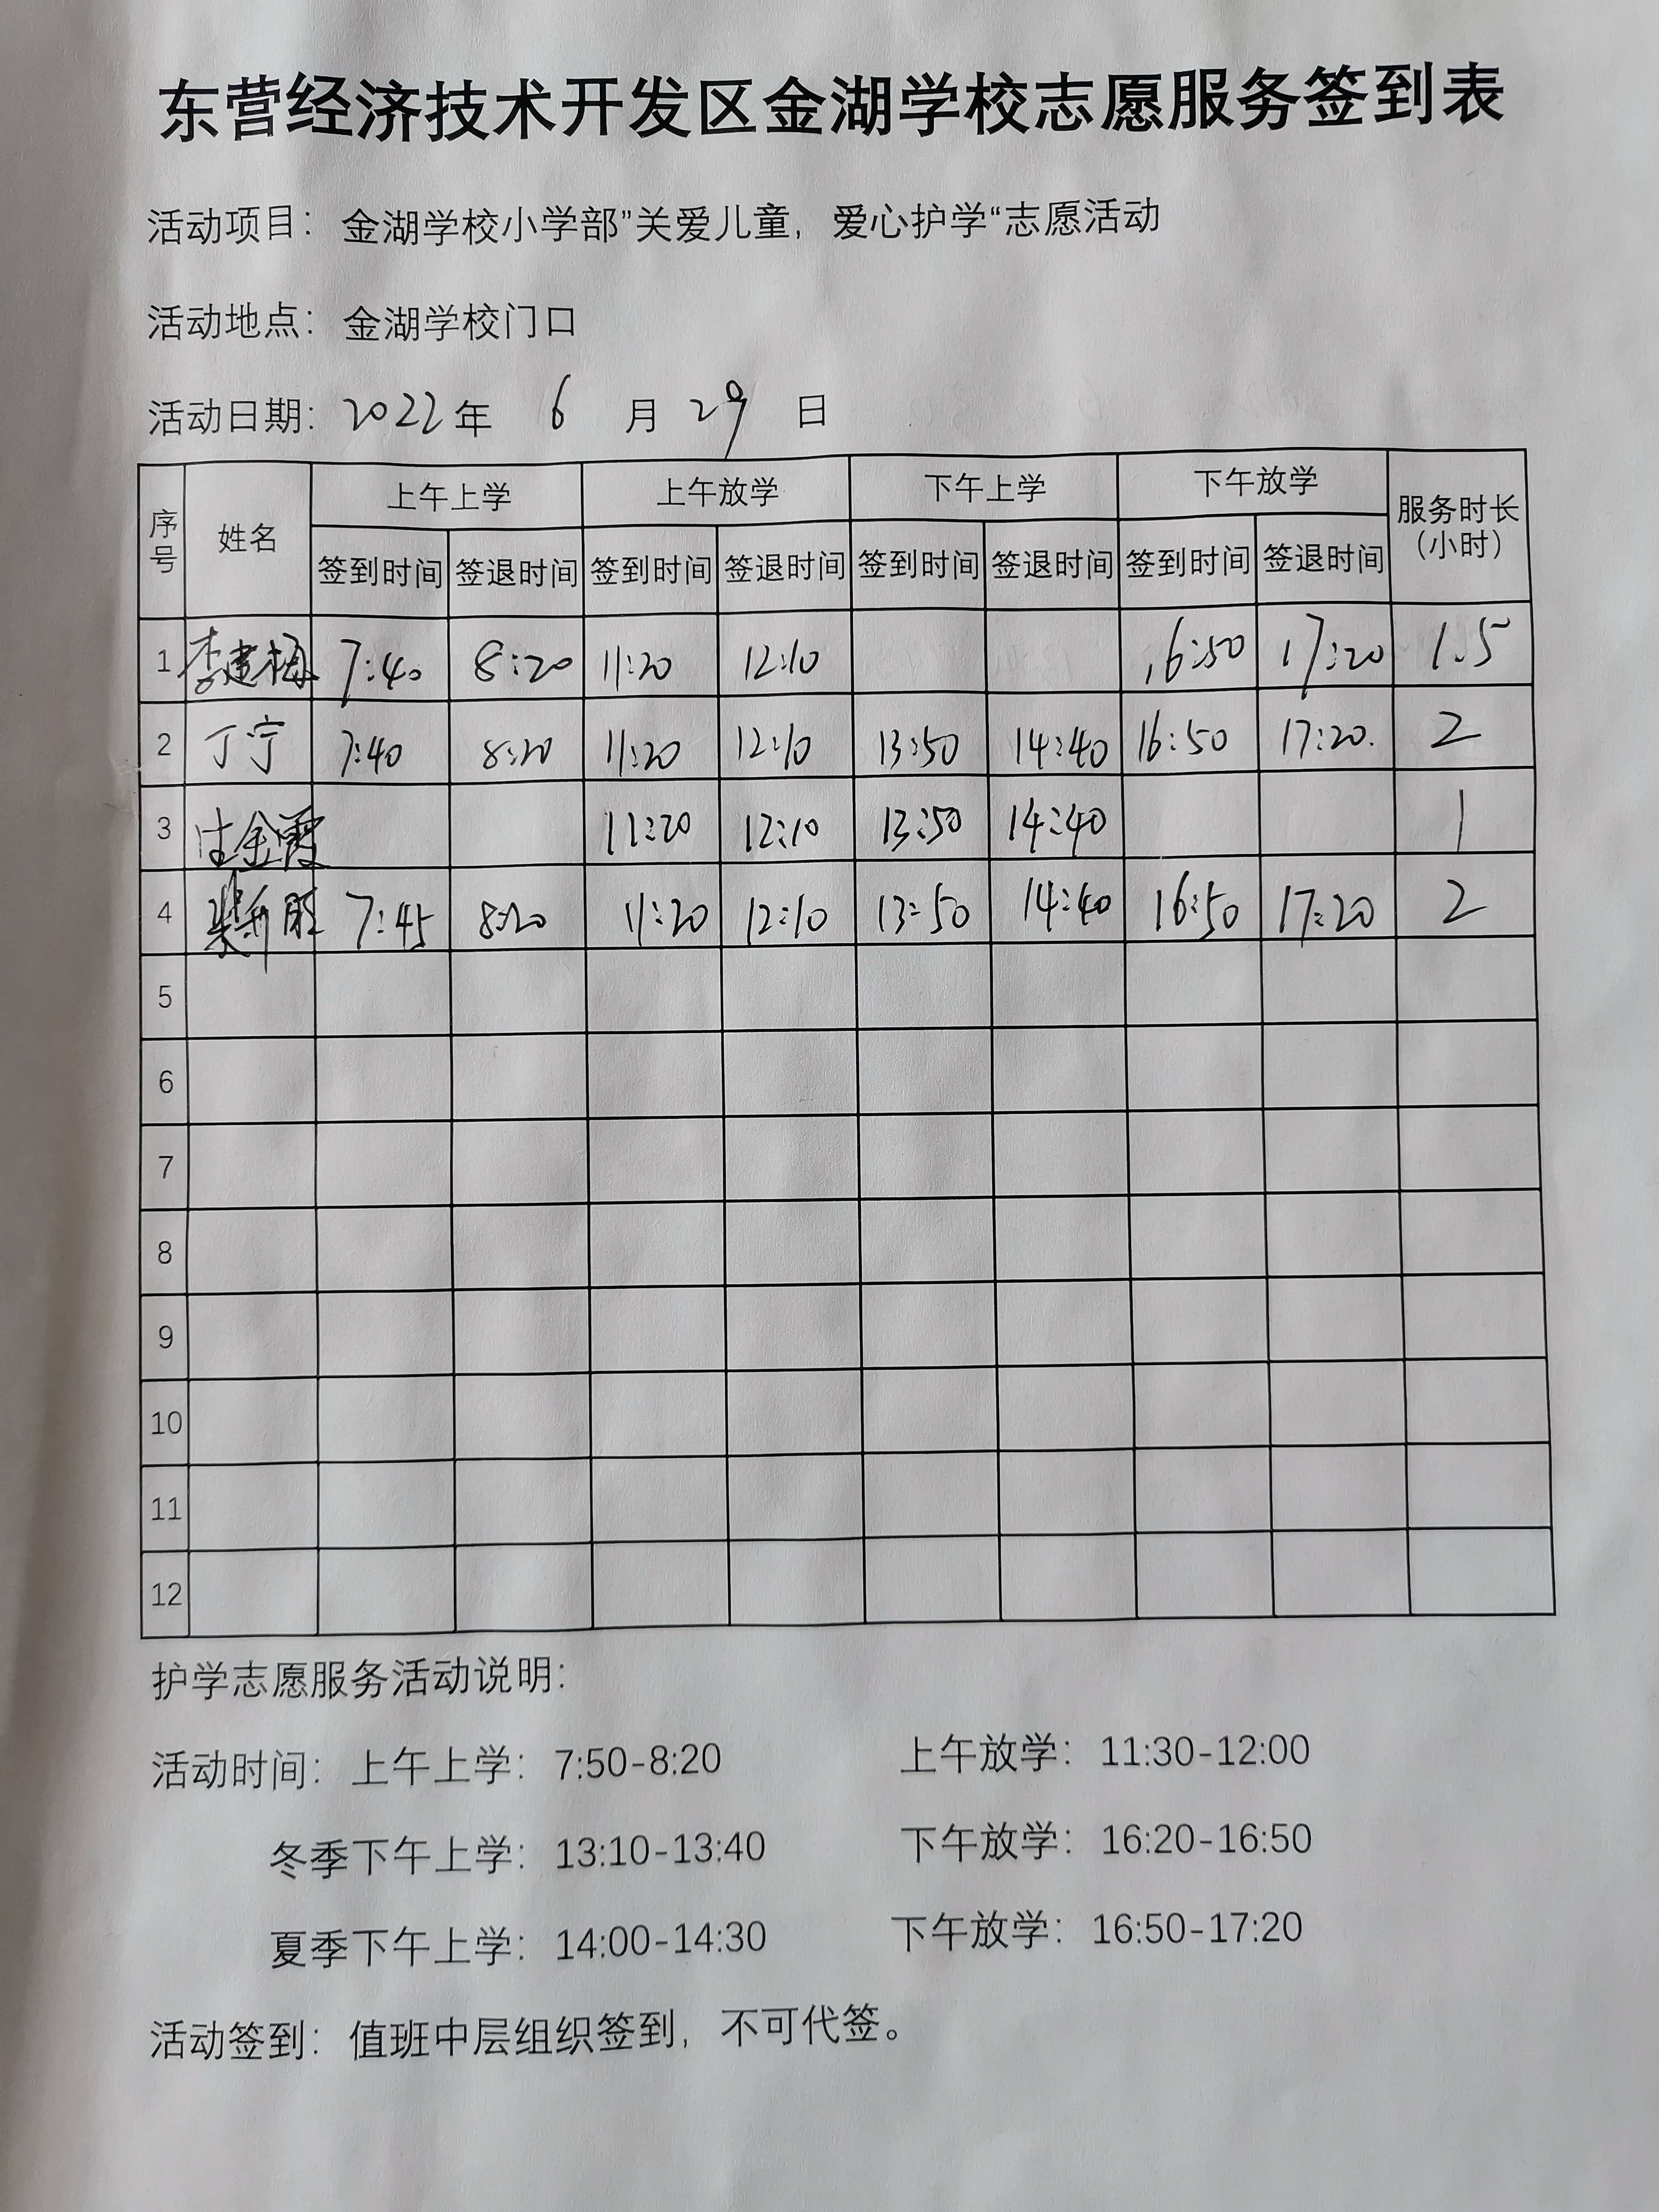 东营经济技术开发区金湖学校志愿服务签到表
活动项目：金湖学校小学部”关爱儿童，爱心护学“志愿活动
活动地点：金湖学校门口
活动日期：2022年 6 月 29 日
序号 姓名 上午上学 上午放学 下午上学 下午放学 服务时长（小时）
签到时间 签退时间 签到时间 签退时间 签到时间 签退时间 签到时间 签退时间
1 李建梅 7:40 8:20 11:20 12:10 16:50 17:20 1.5
2 丁宁 7:40 8:20 11:20 12:10 13:50 14:40 16:50 17:20. 2
3 金霞 11:20 12:10 13:50 14:40 1
4 7:45 8:20 11:20 12:10 13:50 14:40 16:50 17:20 2
5
6
7
8
9
10
11
12
护学志愿服务活动说明：
活动时间：上午上学：7:50-8:20 上午放学：11:30-12:00
冬季下午上学：13:10-13:40 下午放学：16:20-16:50
夏季下午上学：14:00-14:30 下午放学：16:50-17:20
活动签到：值班中层组织签到，不可代签。